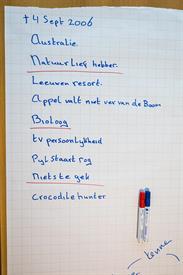 + 4 Sept 2006
Australie.
Natuur Lief hebber.
Leeuwen resort.
Appel valt niet ver van de Boom
Bioloog
tv persoonlijkheid
Pijl Staart rog
Niets te gek
Crocodile hunter